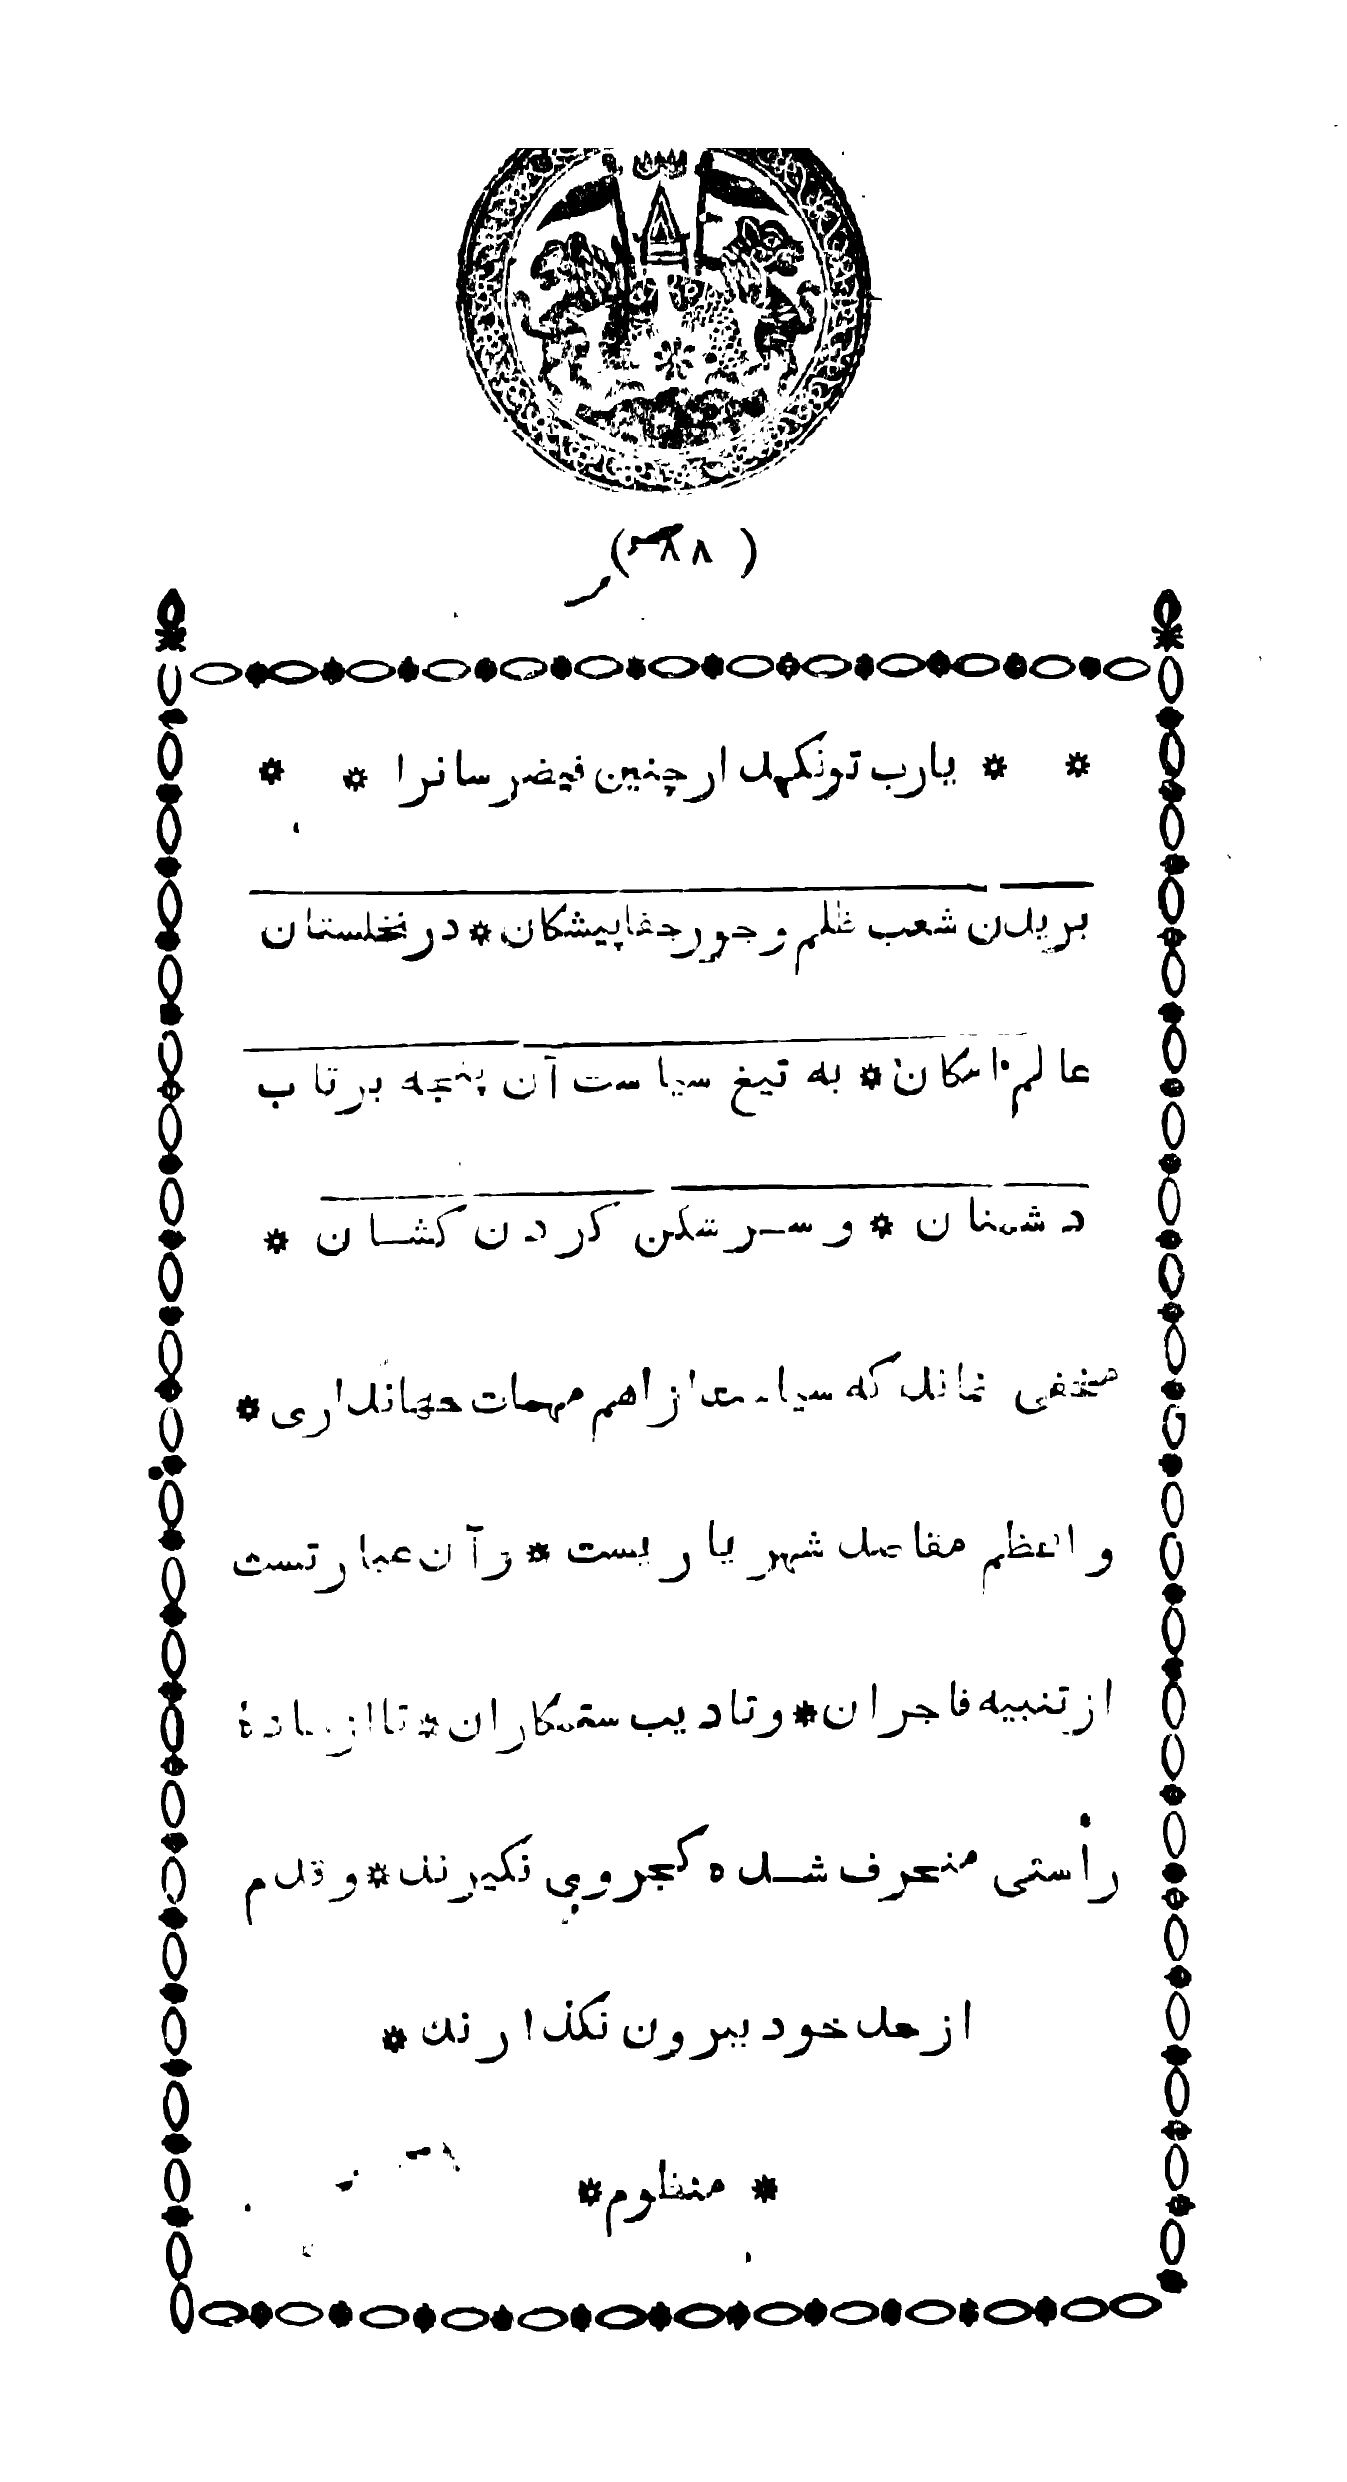 ( ۸۸ )
* * یارب تو نکهدار چنین فیض رسانرا * *
بریدن شعب ظلم و جور جفاپیشکان * در نخلستان
عالم امکان * به تیغ سیاست آن پنجه بر تاب
دشمنان * و سر شکن کردن کشان *
مخفی نماند که سیاست از اهم مهمات جهانداری *
و اعظم مقاصد شهریاریست * و آن عبارتست
از تنبیه فاجران * و تادیب ستمکاران * تا از جادهٔ
راستی منحرف شده کجروی نکیرند * و قدم
از حد خود بیرون نکذارند *
* منظوم *